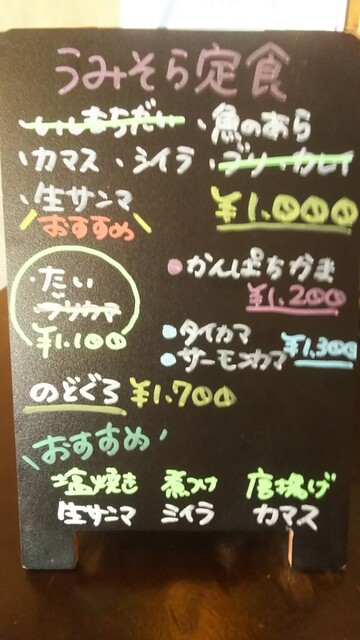 うみそら定食
・いしもちだい ・魚のあら
・カマス ・シイラ ・ブリ カレイ
・生サンマ
おすすめ ¥1.000
・たい
ブリカマ
¥1.100
・かんぱちかま
¥1.200
・タイカマ
・サーモンカマ ¥1.300
のどぐろ ¥1.700
おすすめ
塩焼き 煮つけ 唐揚げ
生サンマ シイラ カマス